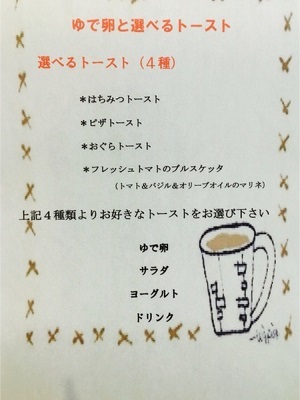 ゆで卵と選べるトースト
選べるトースト（４種）
＊はちみつトースト
＊ピザトースト
＊おぐらトースト
＊フレッシュトマトのブルスケッタ
（トマト&バジル&オリーブオイルのマリネ）
上記４種類よりお好きなトーストをお選び下さい
ゆで卵
サラダ
ヨーグルト
ドリンク